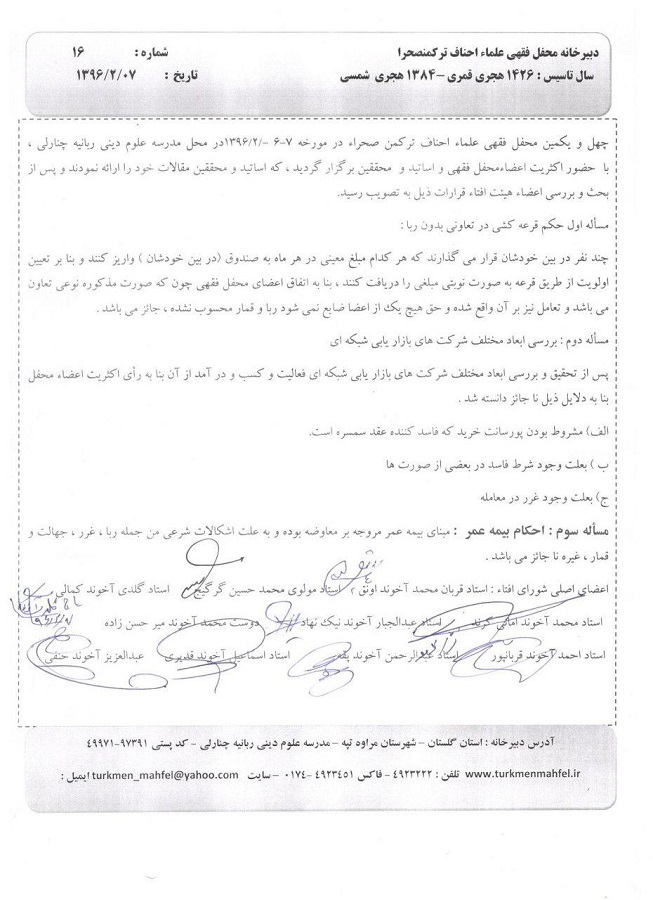 دبیرخانه محفل فقهی علماء احناف ترکمنصحرا شماره : ۱۶
سال تاسیس : ۱۴۲۶ هجری قمری –۱۳۸۴ هجری شمسی تاریخ : ۱۳۹۶/۲/۰۷
چهل و یکمین محفل فقهی علماء احناف ترکمن صحراء در مورخه ۷-۶ -/۱۳۹۶/۲در محل مدرسه علوم دینی ربانیه چنارلی ،
با حضور اکثریت اعضاءمحفل فقهی و اساتید و محققین برگزار گردید ، که اساتید و محققین مقالات خود را ارائه نمودند و پس از
بحث و بررسی اعضاء هیئت افتاء قرارات ذیل به تصویب رسید.
مسأله اول حکم قرعه کشی در تعاونی بدون ربا :
چند نفر در بین خودشان قرار می گذارند که هر کدام مبلغ معینی در هر ماه به صندوق (در بین خودشان ) واریز کنند و بنا بر تعیین
اولویت از طریق قرعه به صورت نوبتی مبلغی را دریافت کنند ، بنا به اتفاق اعضای محفل فقهی چون که صورت مذکوره نوعی تعاون
می باشد و تعامل نیز بر آن واقع شده و حق هیچ یک از اعضا ضایع نمی شود ربا و قمار محسوب نشده ، جائز می باشد .
مسأله دوم : بررسی ابعاد مختلف شرکت های بازار یابی شبکه ای
پس از تحقیق و بررسی ابعاد مختلف شرکت های بازار یابی شبکه ای فعالیت و کسب و در آمد از آن بنا به رأی اکثریت اعضاء محفل
بنا به دلایل ذیل نا جائز دانسته شد .
الف) مشروط بودن پورسانت خرید که فاسد کننده عقد سمسره است.
ب ) بعلت وجود شرط فاسد در بعضی از صورت ها
ج) بعلت وجود غرر در معامله
مسأله سوم : احکام بیمه عمر : مبنای بیمه عمر مروجه بر معاوضه بوده و به علت اشکالات شرعی من جمله ربا ، غرر ، جهالت و
قمار ، غیره نا جائز می باشد .
اعضای اصلی شورای افتاء : استاد قربان محمد آخوند اونق استاد مولوی محمد حسین گرگیج استاد گلدی آخوند کمالی
استاد محمد آخوند امانی گرند استاد عبدالجبار آخوند نیک نهاد دوست محمد آخوند میر حسن زاده
استاد احمد آخوند قربانپور استاد عبدالرحمن آخوند استاد اسماعیل آخوند قدیری عبدالعزیز آخوند حنفی
آدرس دبیرخانه : استان گلستان – شهرستان مراوه تپه – مدرسه علوم دینی ربانیه چنارلی - کد پستی ۹۷۳۹۱-۴۹۹۷۱
www.turkmenmahfel.ir تلفن : ۴۹۲۳۲۲۲ - فاکس ۴۹۲۳۴۵۱ -۰۱۷۴ –سایت turkmen_mahfel@yahoo.com ایمیل :